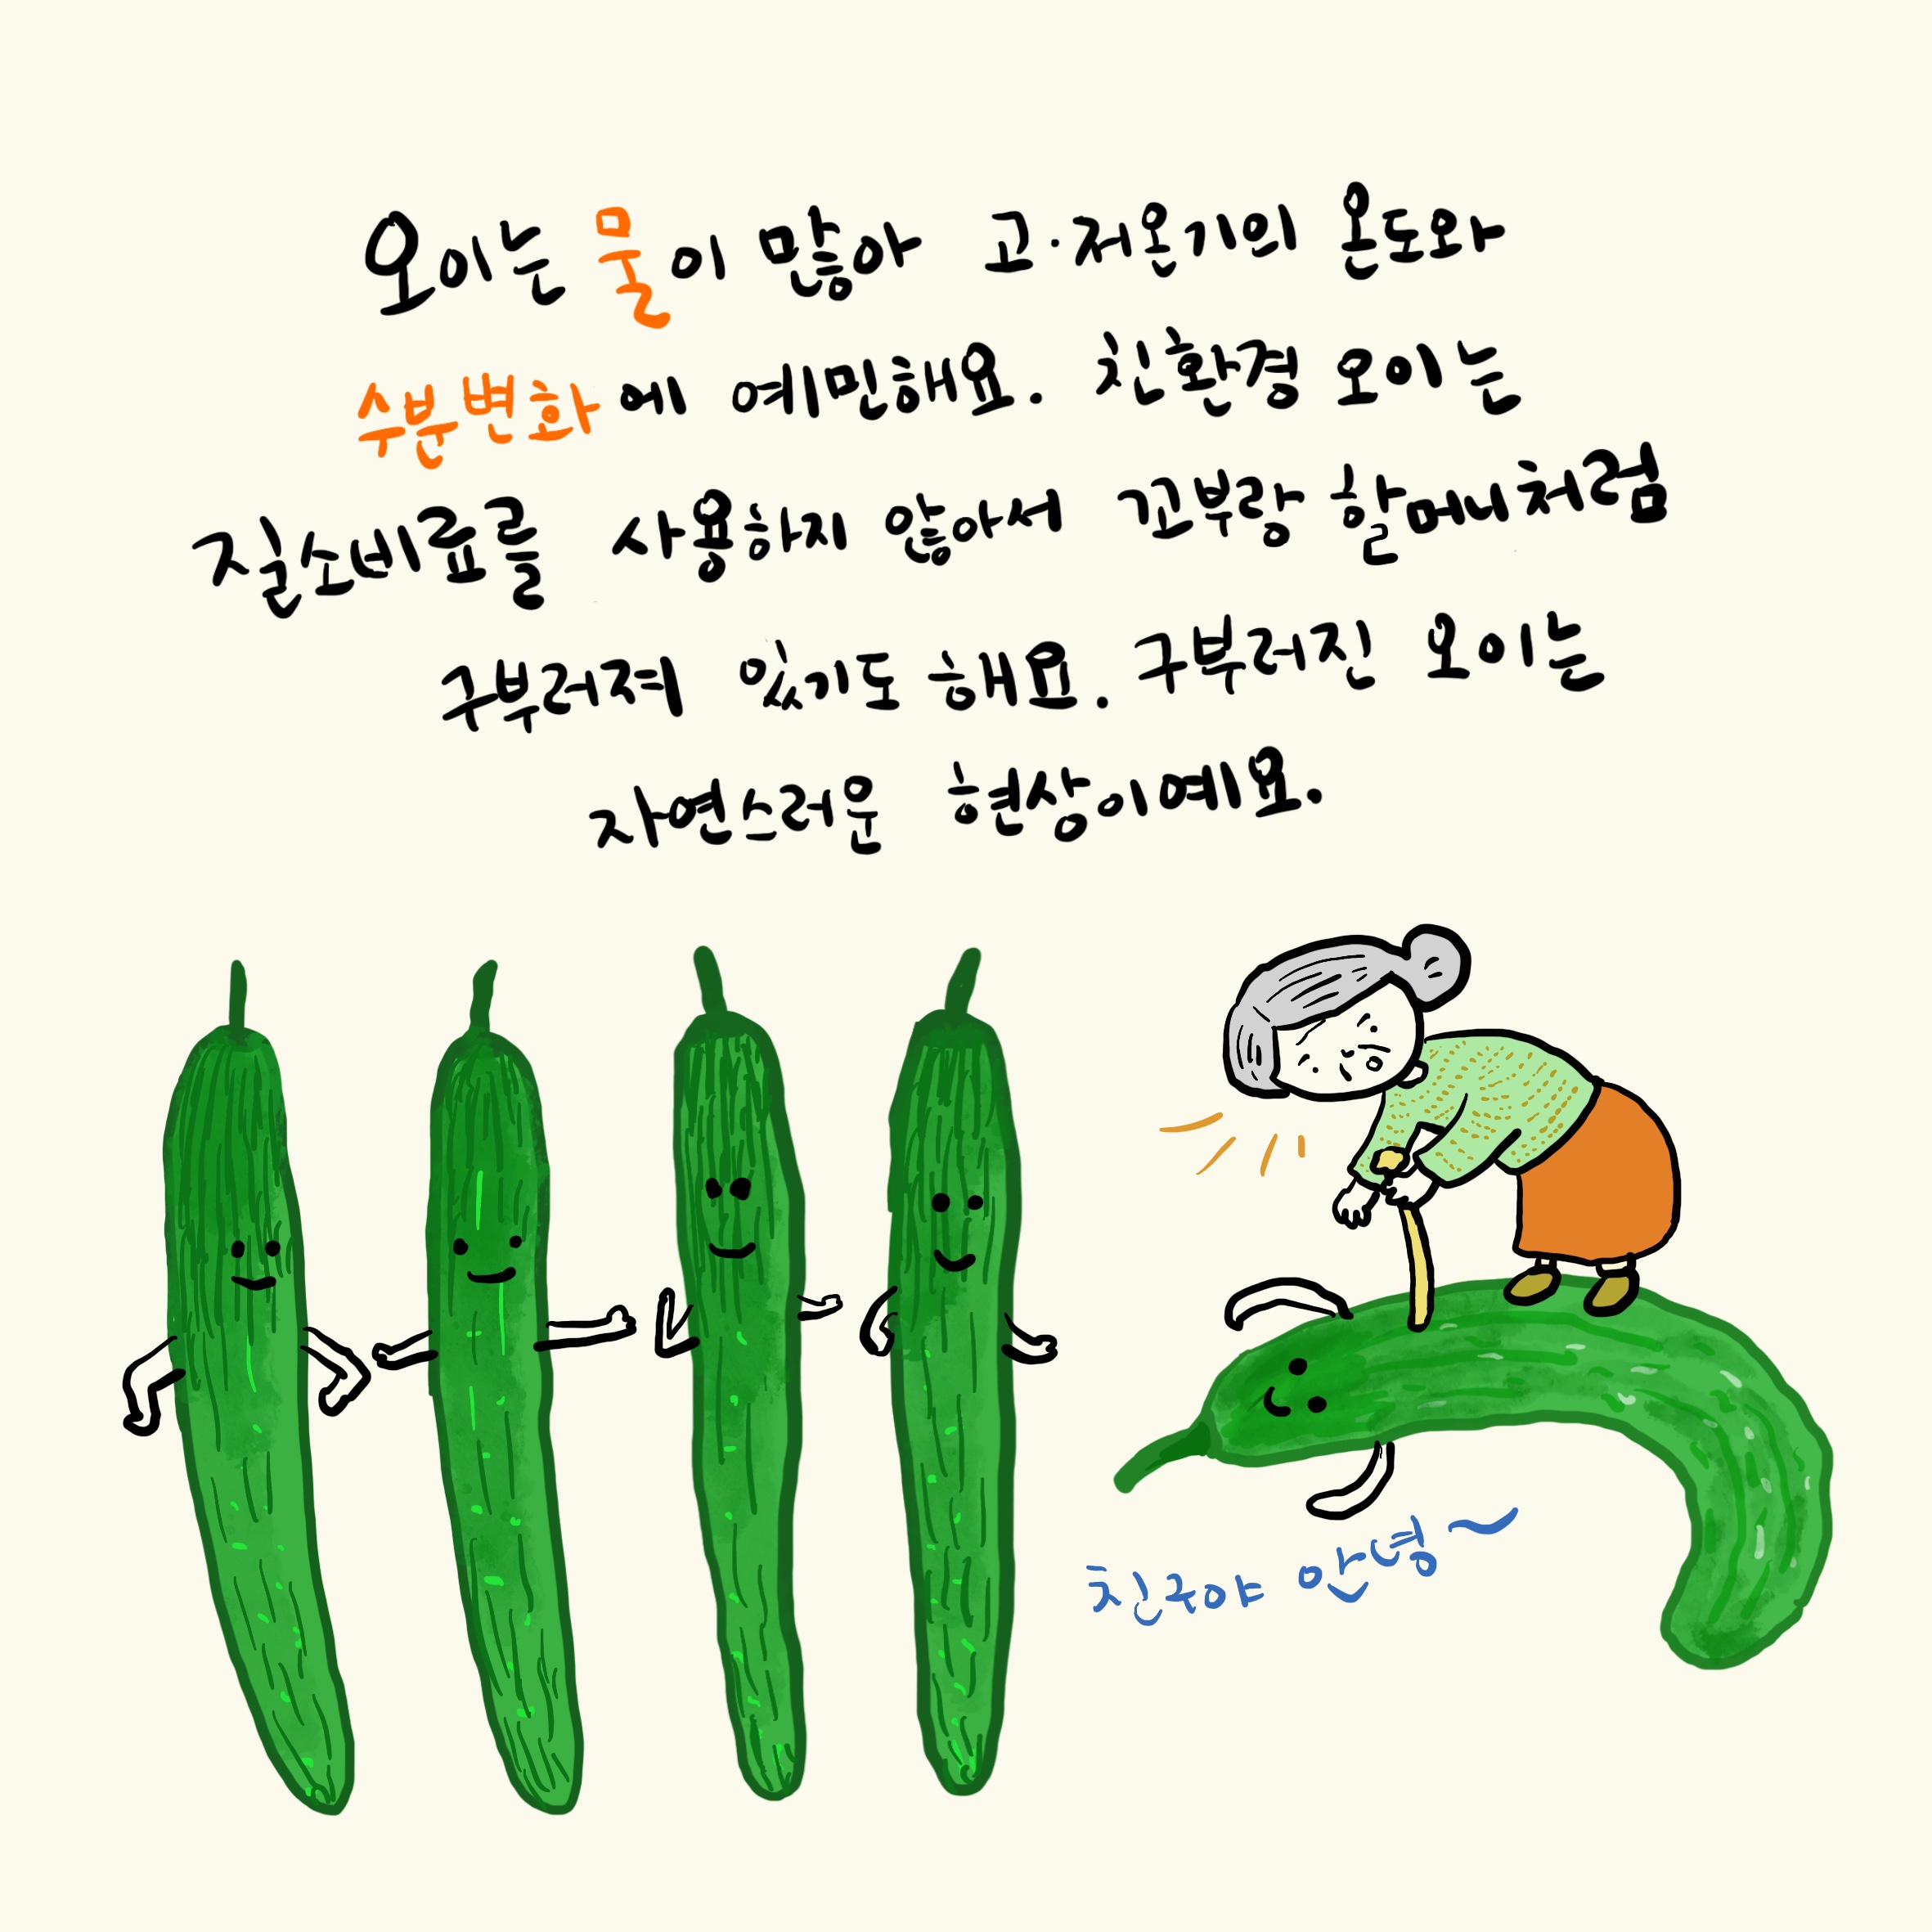 오이는 물이 많아 고·저온기의 온도와
수분변화에 예민해요. 친환경 오이는
질소비료를 사용하지 않아서 꼬부랑 할머니처럼
구부러져 있기도 해요. 구부러진 오이는
자연스러운 현상이예요.
친구야 안녕~